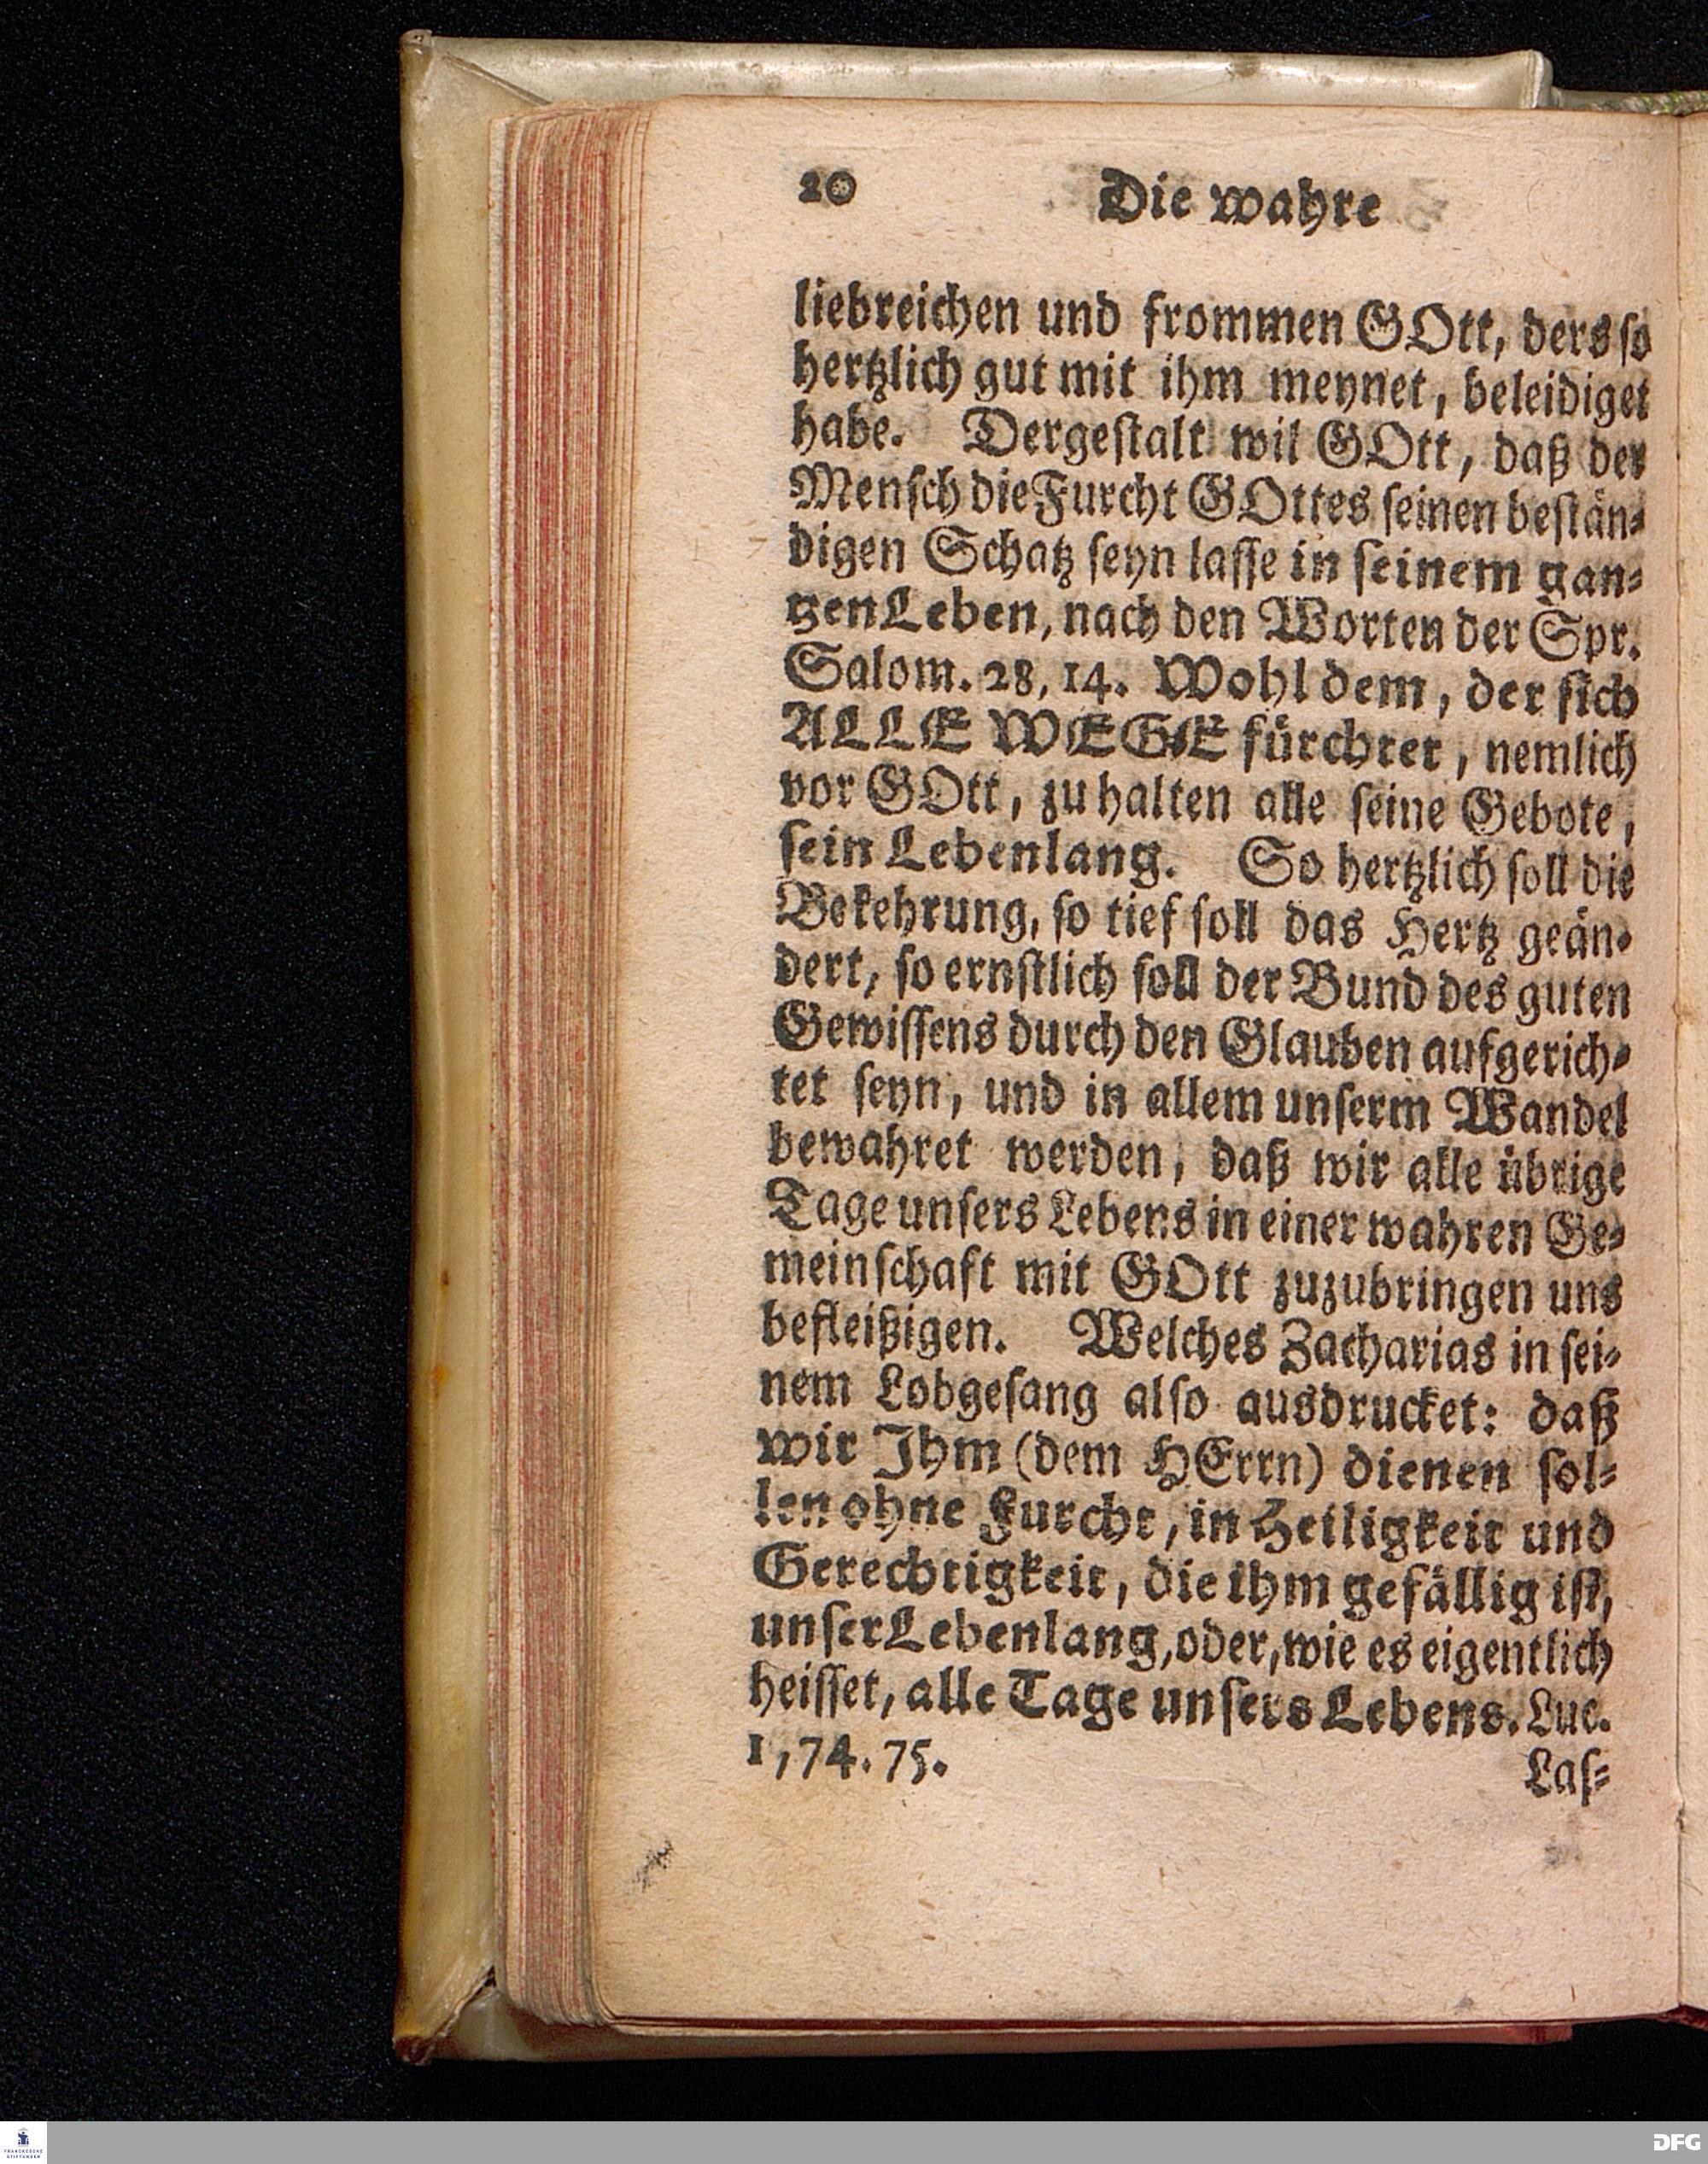 20 Die wahre
liebreichen und frommen GOtt, ders so
hertzlich gut mit ihm meynet, beleidiget
habe. Dergestalt wil GOtt, daß der
Mensch die Furcht GOttes seinen bestän-
digen Schatz seyn lasse in seinem gan-
tzen Leben, nach den Worten der Spr.
Salom. 28, 14. Wohl dem, der sich
ALLEWEGE fürchtet, nemlich
vor GOtt, zu halten alle seine Gebote,
sein Lebenlang. So hertzlich soll die
Bekehrung, so tief soll das Hertz geän-
dert, so ernstlich soll der Bund des guten
Gewissens durch den Glauben aufgerich-
tet seyn, und in allem unserm Wandel
bewahret werden, daß wir alle übrige
Tage unsers Lebens in einer wahren Ge-
meinschaft mit GOtt zuzubringen uns
befleißigen. Welches Zacharias in sei-
nem Lobgesang also ausdrucket: daß
wir Ihm (dem HErrn) dienen sol-
len ohne Furcht, in Heiligkeit und
Gerechtigkeit, die ihm gefällig ist,
unser Lebenlang, oder, wie es eigentlich
heisset, alle Tage unsers Lebens. Luc.
1, 74. 75.
Las-
FRANCKESCHE
STIFTUNGEN
DFG